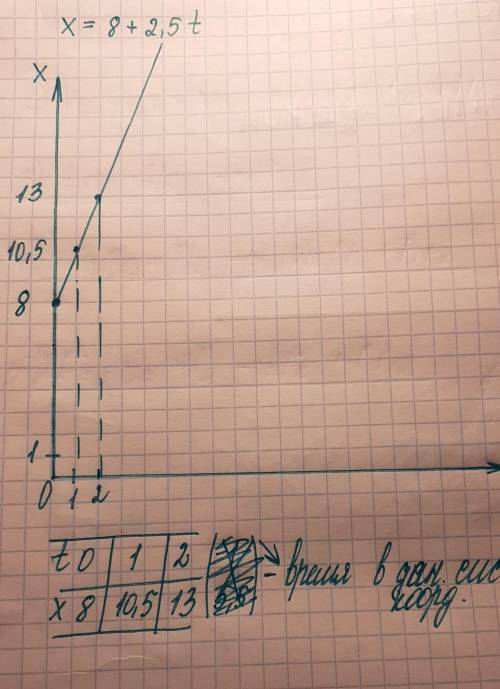 x = 8 + 2,5 t
x
13
10,5
8
1
0 1 2
t 0 1 2 - время в дан. сис
x 8 10,5 13 коорд.